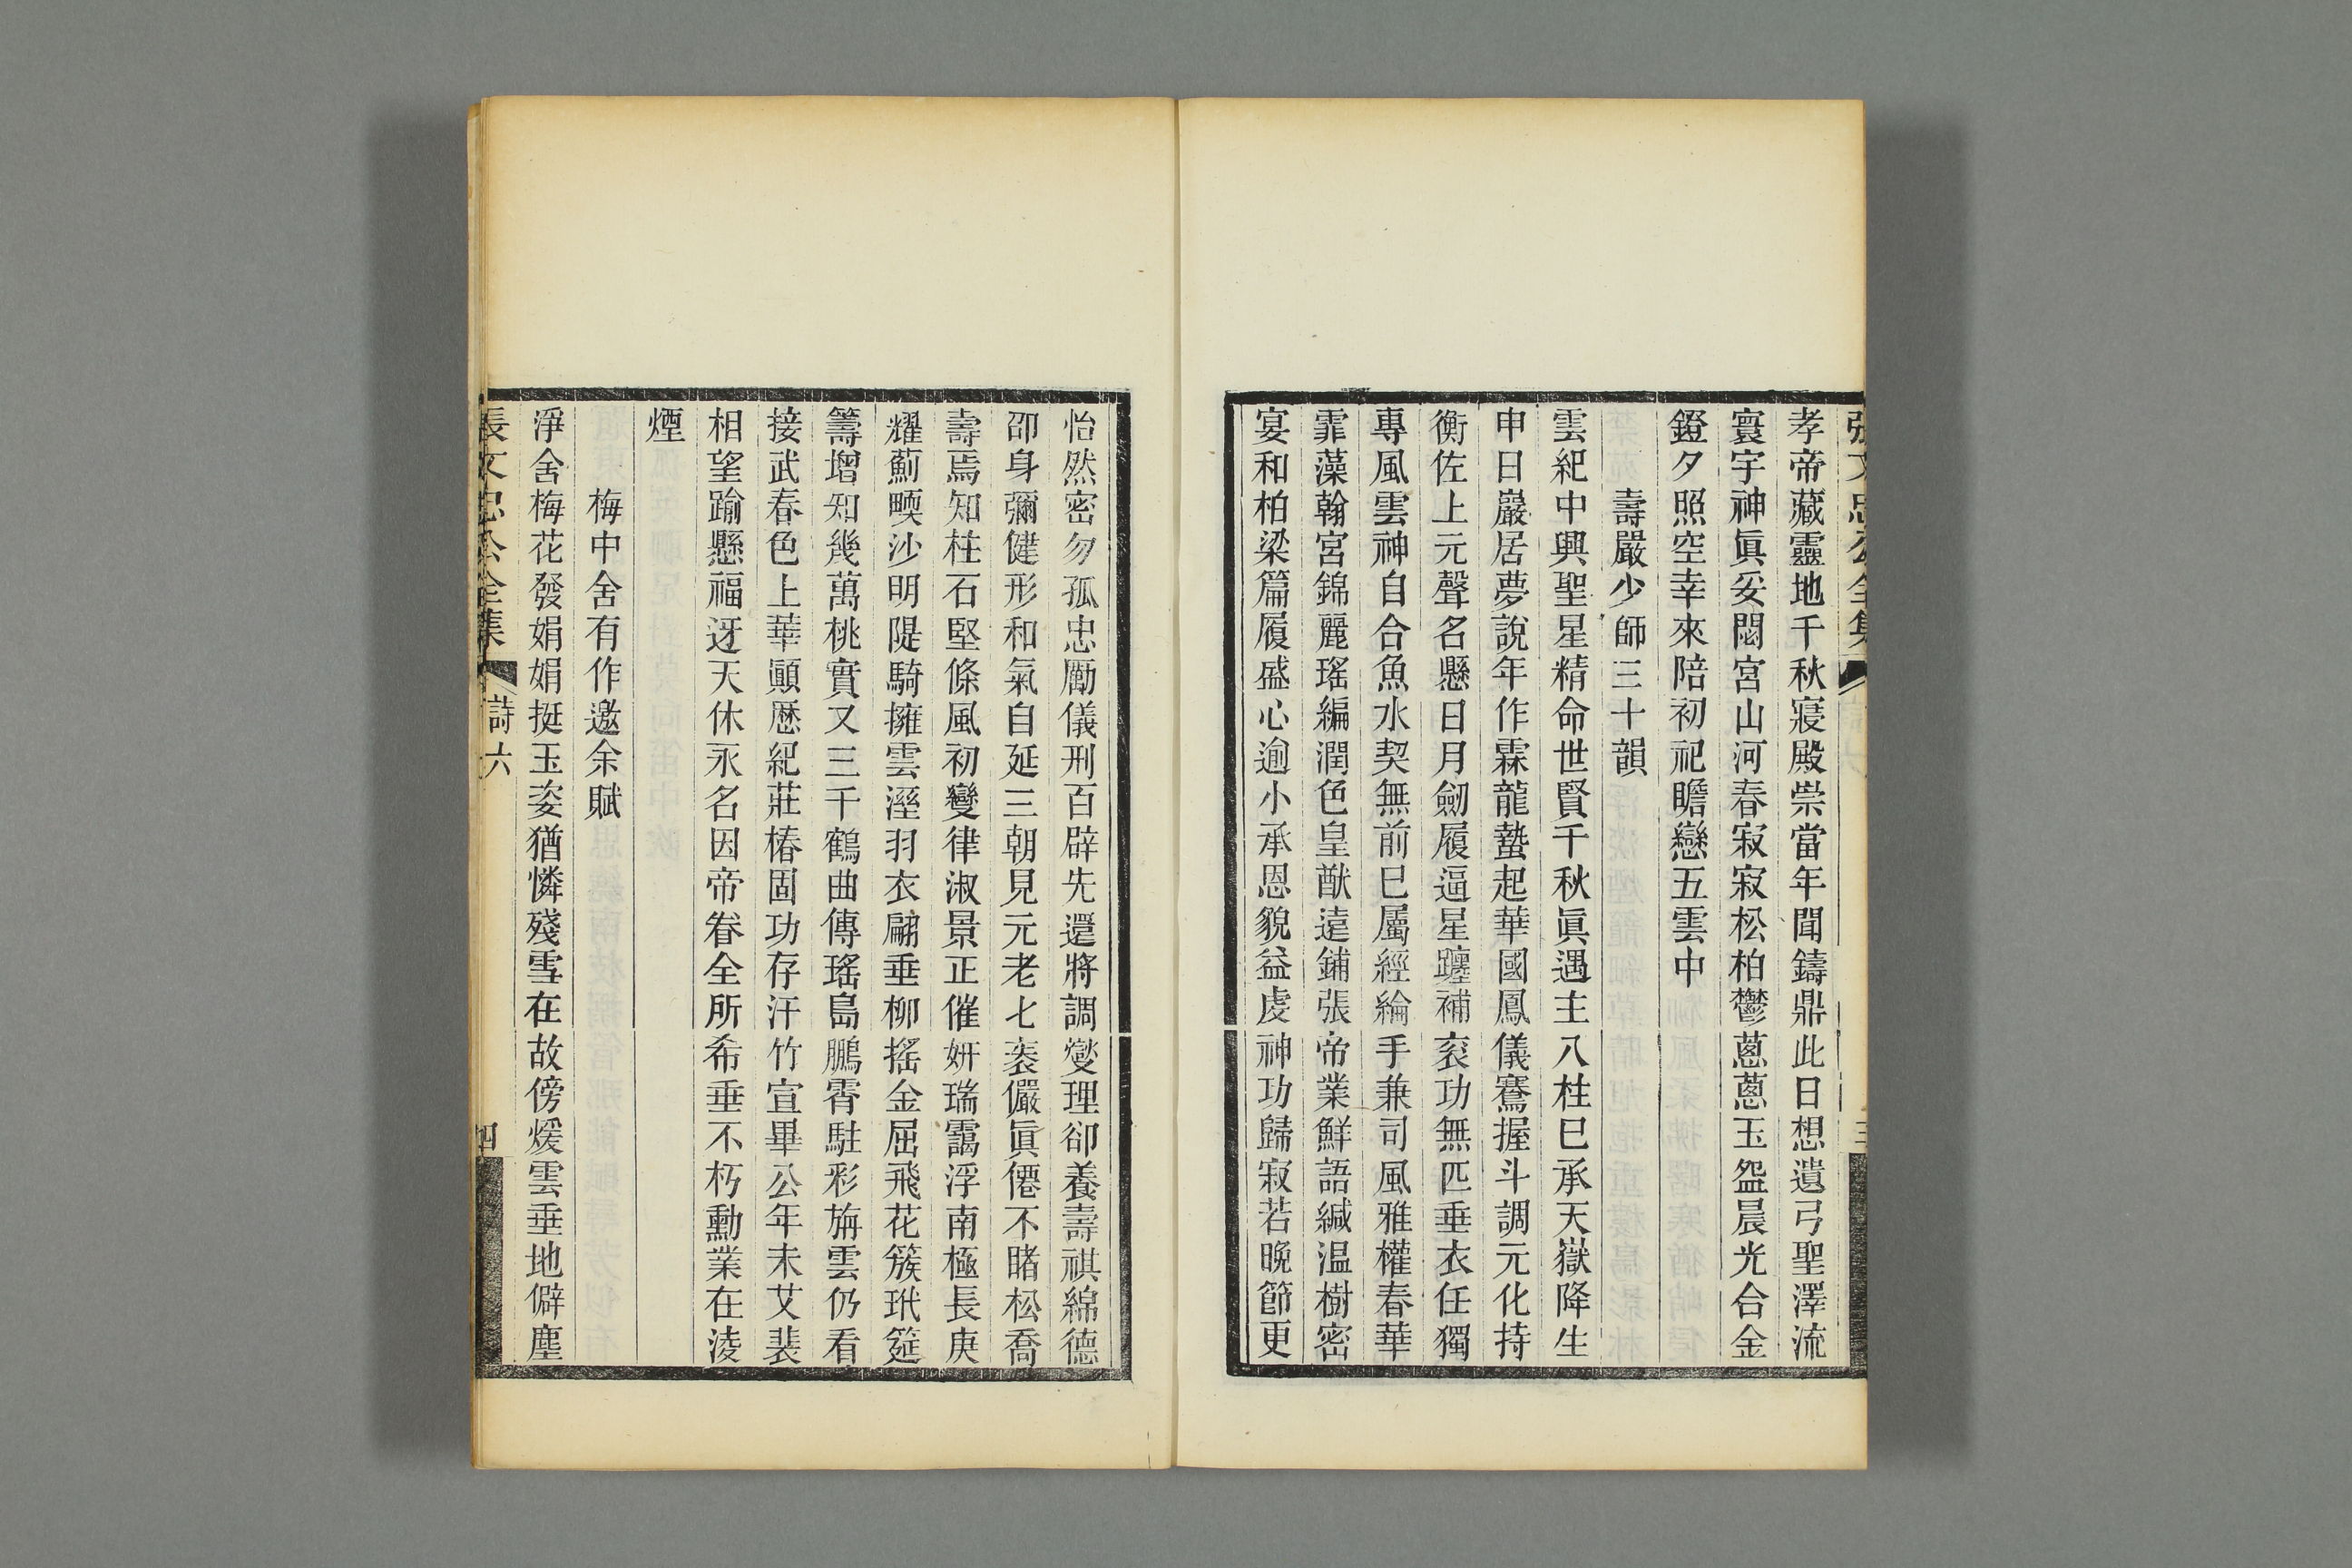 張文忠公全集
孝帝藏靈地千秋寢殿崇當年聞鑄鼎此日想遺弓聖澤流
寰宇神眞妥閟宮山河春寂寂松柏鬱蔥蔥玉盌晨光合金
鐙夕照空幸來陪初祀瞻戀五雲中
壽嚴少師三十韻
雲紀中興聖星精命世賢千秋眞遇主八柱巳承天嶽降生
申日巖居夢說年作霖龍蟄起華國鳳儀騫握斗調元化持
衡佐上元聲名懸日月劒履逼星躔補袞功無匹垂衣任獨
專風雲神自合魚水契無前巳屬經綸手兼司風雅權春華
霏藻翰宮錦麗瑤編潤色皇猷遠鋪張帝業鮮語緘温樹密
宴和柏梁篇履盛心逾小承恩貌益虔神功歸寂若晚節更
怡然密勿孤忠勵儀刑百辟先還將調燮理卻養壽祺綿德
卲身彌健形和氣自延三朝見元老七袠儼眞僊不睹松喬
壽焉知柱石堅條風初變律淑景正催姸瑞靄浮南極長庚
耀薊壖沙明隄騎擁雲溼羽衣翩垂柳搖金屈飛花簇玳筵
籌增知幾萬桃實又三千鶴曲傳瑤島鵬霄駐彩旃雲仍看
接武春色上華顚歷紀莊椿固功存汗竹宣畢公年未艾裴
相望踰懸福迓天休永名因帝眷全所希垂不朽勳業在淩
煙
梅中舍有作邀余賦
淨舍梅花發娟娟挺玉姿猶憐殘雪在故傍煖雲垂地僻塵
張文忠公全集
詩六
四